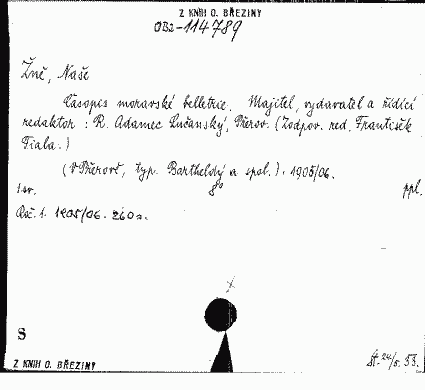 Z KNIH O. BŘEZINY
OB2-114789
Žně, Naše
Časopis moravské belletrie. Majitel, vydavatel a řídící
redaktor: R. Adamec Lučanský, Přerov. (Zodpov. red. František
Fiala.)
(V Přerově, typ. Bartheldy a spol.). 1905/06.
1 sv. 8° ppl.
Roč. 1. 1905/06. 260 s.
S
Z KNIH O. BŘEZINY
St. 24/5. 53.